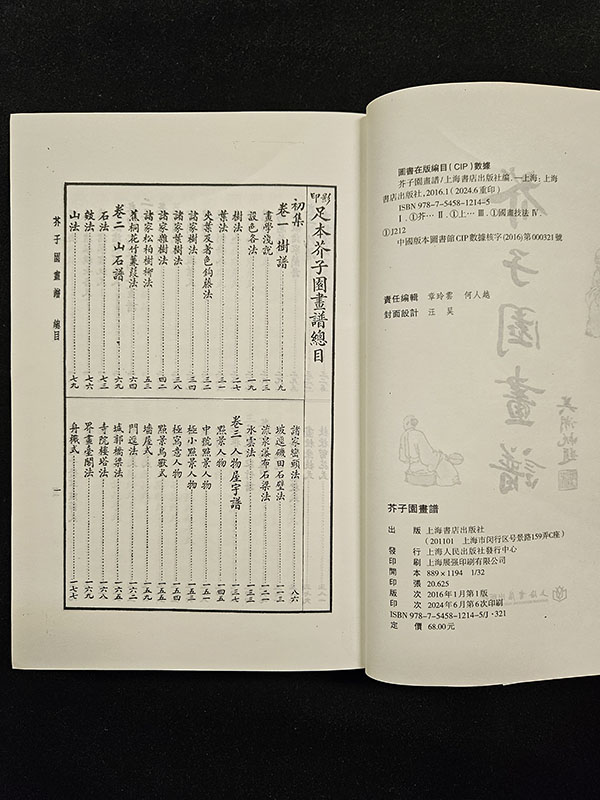 圖書在版編目(CIP)數據
芥子園畫譜/上海書店出版社編.—上海:上海
書店出版社,2016.1(2024.6重印)
ISBN 978-7-5458-1214-5
Ⅰ.①芥… Ⅱ.①上… Ⅲ.①國畫技法 Ⅳ.
①J212
中國版本圖書館CIP數據核字(2016)第000321號
責任編輯 章玲雲 何人越
封面設計 汪昊
芥子園畫譜
出版 上海書店出版社
(201101 上海市闵行区号景路159弄C座)
發行 上海人民出版社發行中心
印刷 上海展强印刷有限公司
開本 889×1194 1/32
印張 20.625
版次 2016年1月第1版
印次 2024年6月第6次印刷
ISBN 978-7-5458-1214-5/J·321
定價 68.00元
芥子園畫譜
影印足本芥子園畫譜總目
初集
卷一 樹譜 九
畫學淺說 一三
設色各法 一九
樹法 二七
葉法
夾葉及著色鈎藤法 三二
諸家樹法 三四
諸家葉樹法 三八
諸家雜樹法 四二
諸家松柏樹柳法 五三
蕉桐花竹蒹葭法 六四
卷二 山石譜 六九
石法 七三
皴法 七六
山法 七九
諸家巒頭法 八六
坡逕磯田石壁法 一一三
流泉瀑布石梁法 一二一
水雲法 一三一
卷三 人物屋宇譜 一三七
點景人物 一四五
中號點景人物 一五一
極小點景人物
極寫意人物
點景鳥獸式
墻屋式 一五九
門逕法 一六二
城郭橋梁法 一六五
寺院樓塔法 一六八
界畫臺閣法 一六九
舟檝式 一七七
芥子園畫譜 總目 一